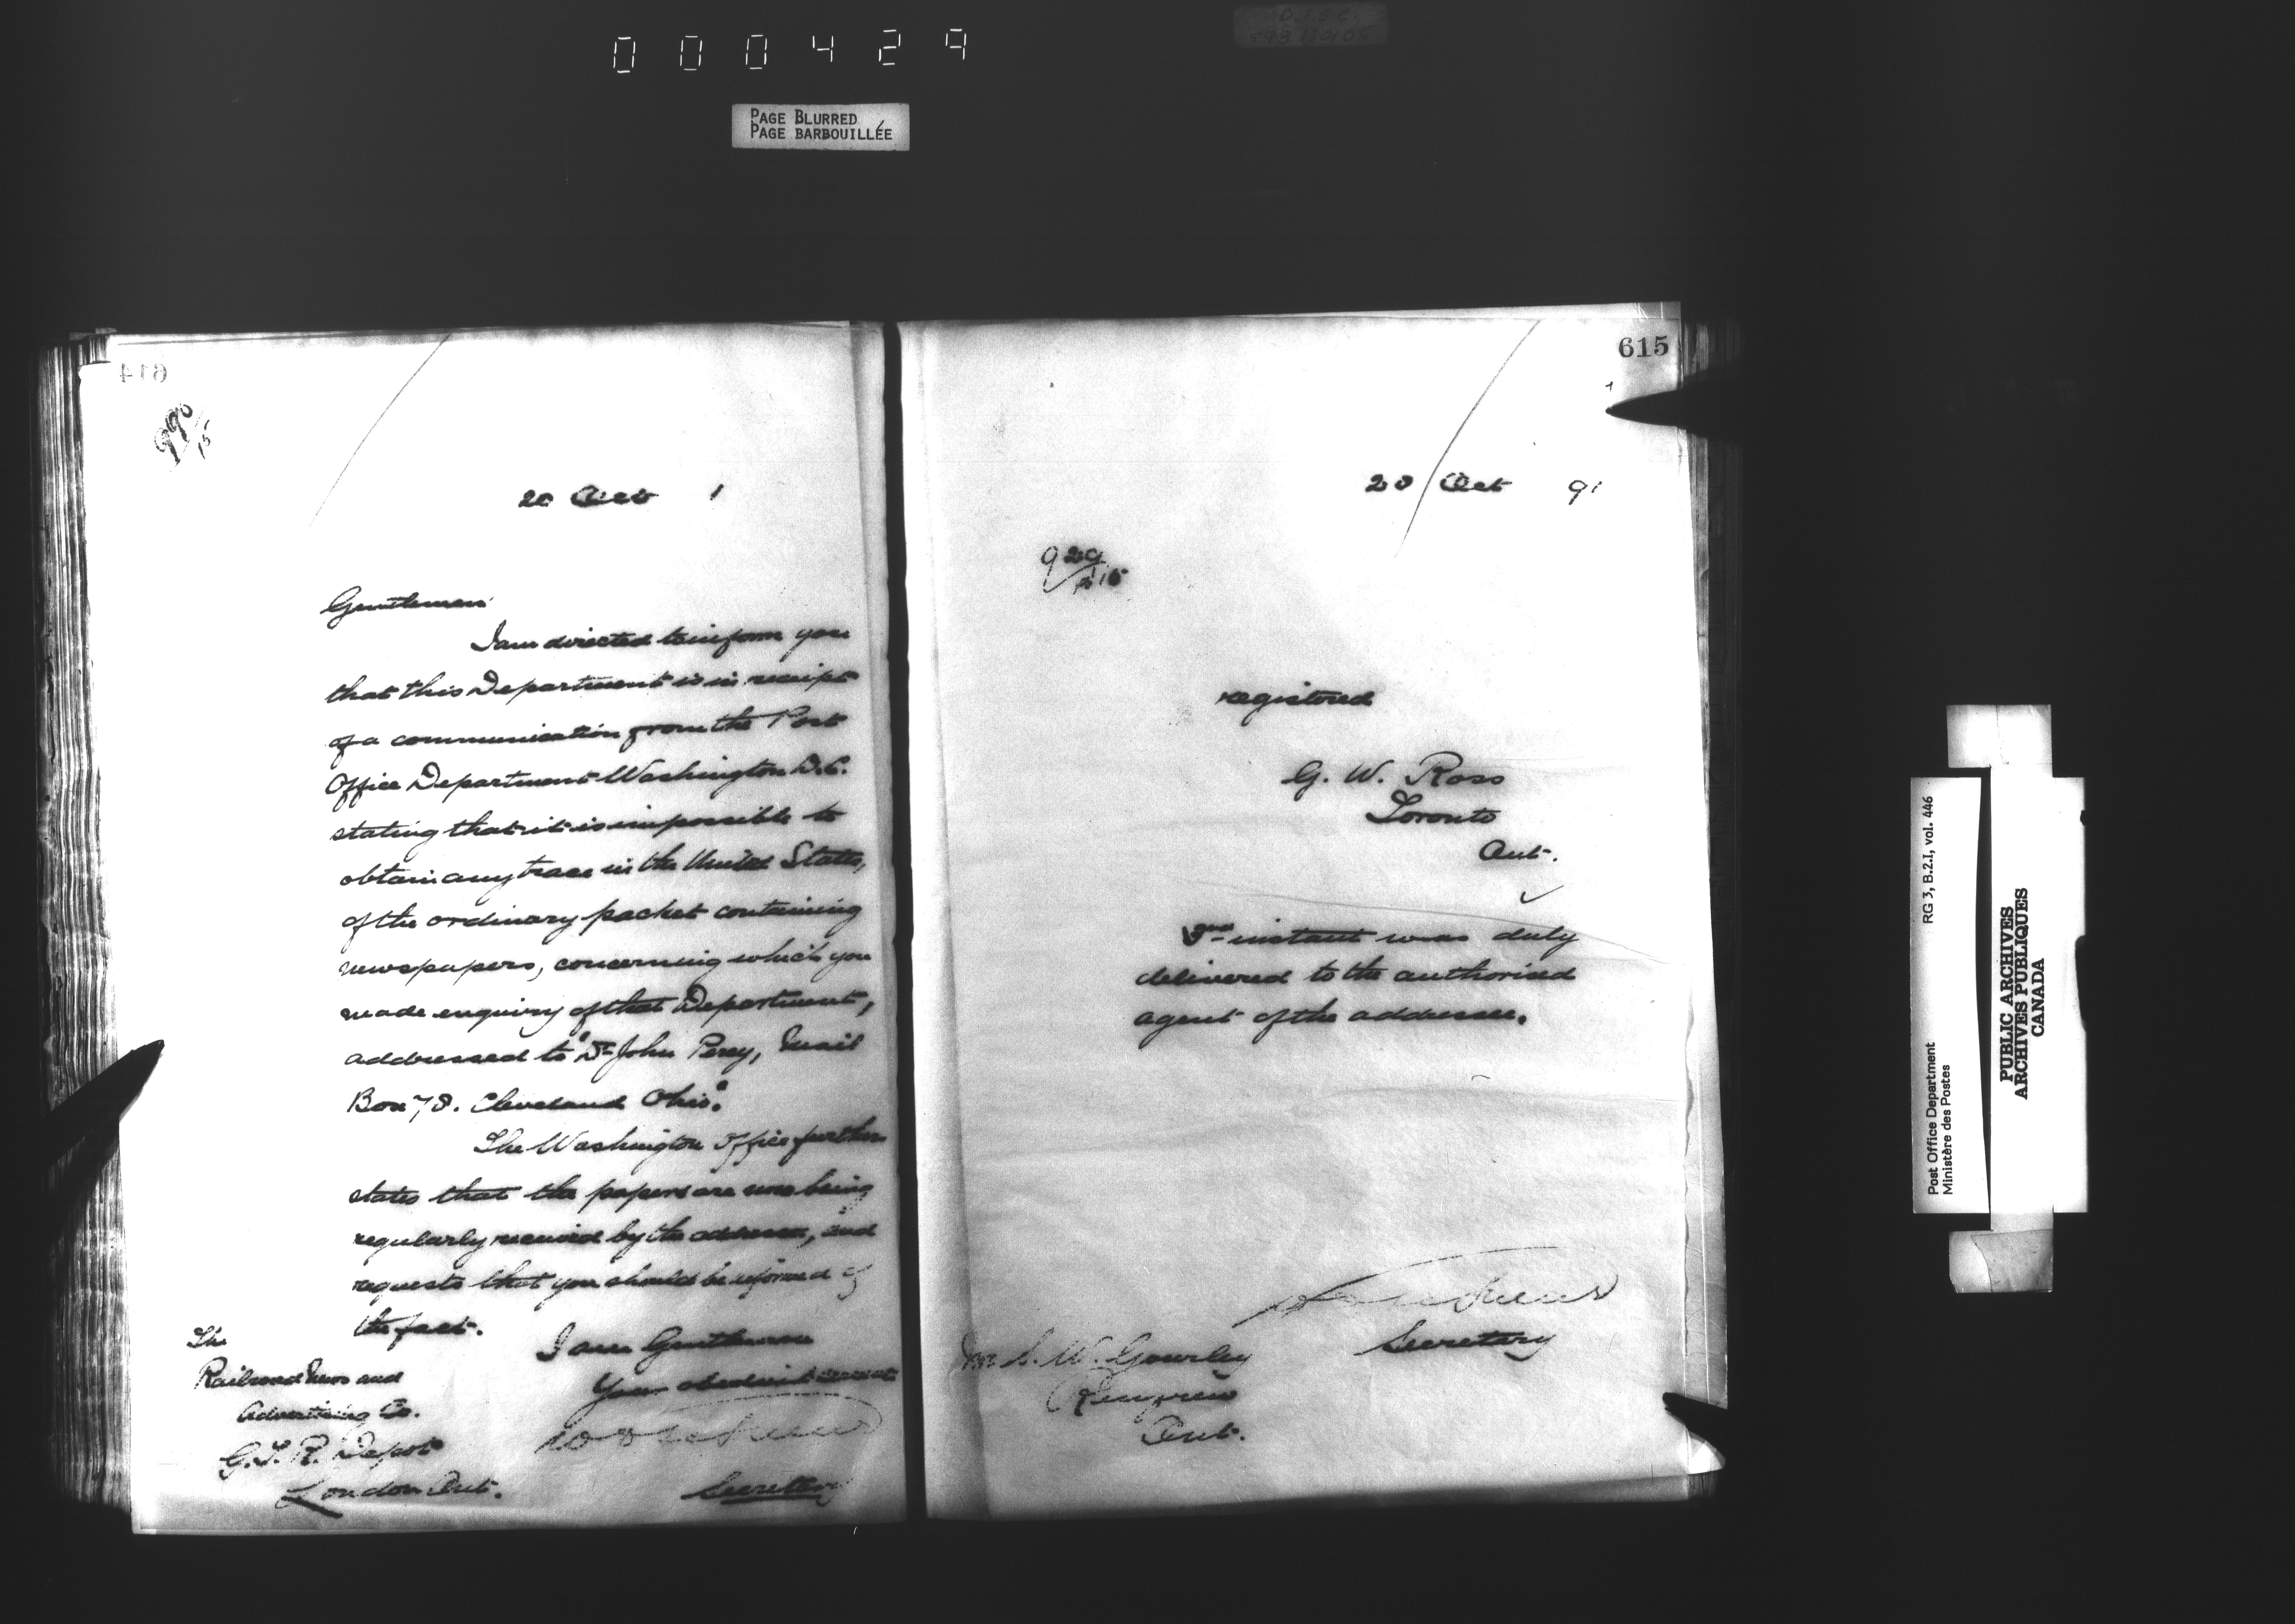 000429
PAGE BLURRED
PAGE BARBOUILLÉE
614
990/15
20 Oct 1
Gentlemen
I am directed to inform you
that this Department is in receipt
of a communication from the Post
Office Department Washington D.C.
stating that it is impossible to
obtain any trace in the United States,
of the ordinary packet containing
newspapers, concerning which you
made enquiry of that Department,
addressed to "Dr John Percy, Mail
Box 78. Cleveland Ohio."
The Washington Office further
states that the papers are now being
regularly received by the addressee, and
requests that you should be informed of
the fact.
I am Gentlemen
Your obedient servant
Secretary
The
Railroad News and
Advertising Co.
G.T.R. Depot
London Ont.
615
20 Oct 91
929
registered
G. W. Ross
Toronto
Ont.
instant was duly
delivered to the authorised
agent of the addressee.
Secretary
Mr S. W. Gourley
Renfrew
Ont.
Post Office Department
Ministère des Postes
RG 3, B.2.I, vol. 446
PUBLIC ARCHIVES
ARCHIVES PUBLIQUES
CANADA